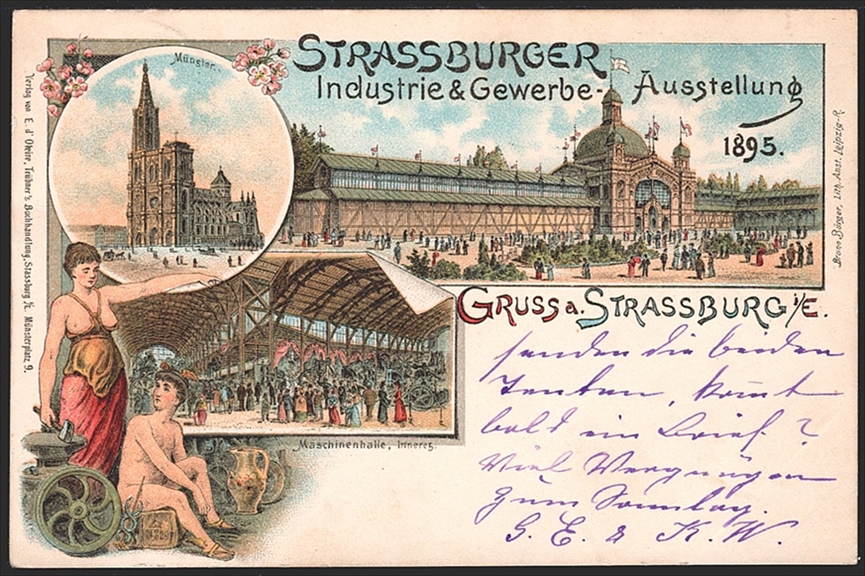 STRASSBURGER
Industrie & Gewerbe-Ausstellung
1895.
Münster.
Maschinenhalle, Inneres.
GRUSS a. STRASSBURG i/E.
senden die beiden
Tanten, kommt
bald ein Brief?
Viel Vergnügen
zum Sonntag.
G. E. & K. W.
Verlag von E. d'Oleire, Trübner's Buchhandlung, Strassburg i/E. Münsterplatz 9.
Bruno Bürger, Lith. Anst. Leipzig-R.